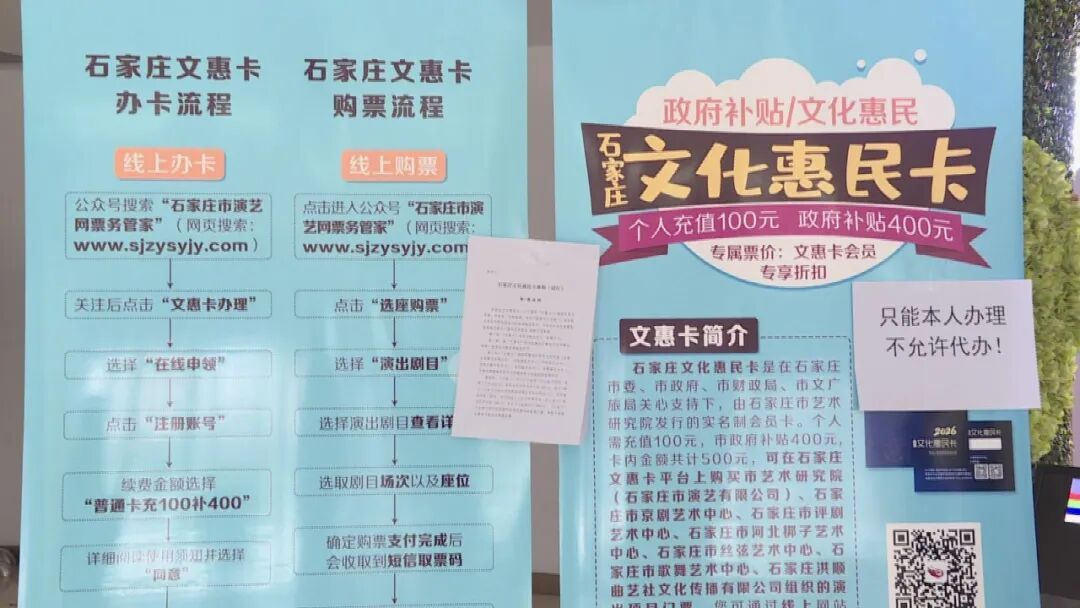 石家庄文惠卡
办卡流程
线上办卡
公众号搜索“石家庄市演艺
网票务管家”（网页搜索：
www.sjzysyjy.com）
关注后点击“文惠卡办理”
选择“在线申领”
点击“注册账号”
续费金额选择
“普通卡充100补400”
详细阅读使用须知并选择
“同意”
石家庄文惠卡
购票流程
线上购票
点击进入公众号“石家庄市演
艺网票务管家”（网页搜索：
www.sjzysyjy.com）
点击“选座购票”
选择“演出剧目”
选择演出剧目查看详
选取剧目场次以及座位
确定购票支付完成后
会收取到短信取票码
政府补贴/文化惠民
石家庄
文化惠民卡
个人充值100元 政府补贴400元
专属票价：文惠卡会员
专享折扣
文惠卡简介
石家庄文化惠民卡是在石家庄
市委、市政府、市财政局、市文广
旅局关心支持下，由石家庄市艺术
研究院发行的实名制会员卡。个人
需充值100元，市政府补贴400元，
卡内金额共计500元，可在石家庄
文惠卡平台上购买市艺术研究院
（石家庄市演艺有限公司）、石家
庄市京剧艺术中心、石家庄市评剧
艺术中心、石家庄市河北梆子艺术
中心、石家庄市丝弦艺术中心、石
家庄市歌舞艺术中心、石家庄洪顺
曲艺社文化传播有限公司组织的演
出项目门票，您可通过线上网站
只能本人办理
不允许代办！
2026
文化惠民卡